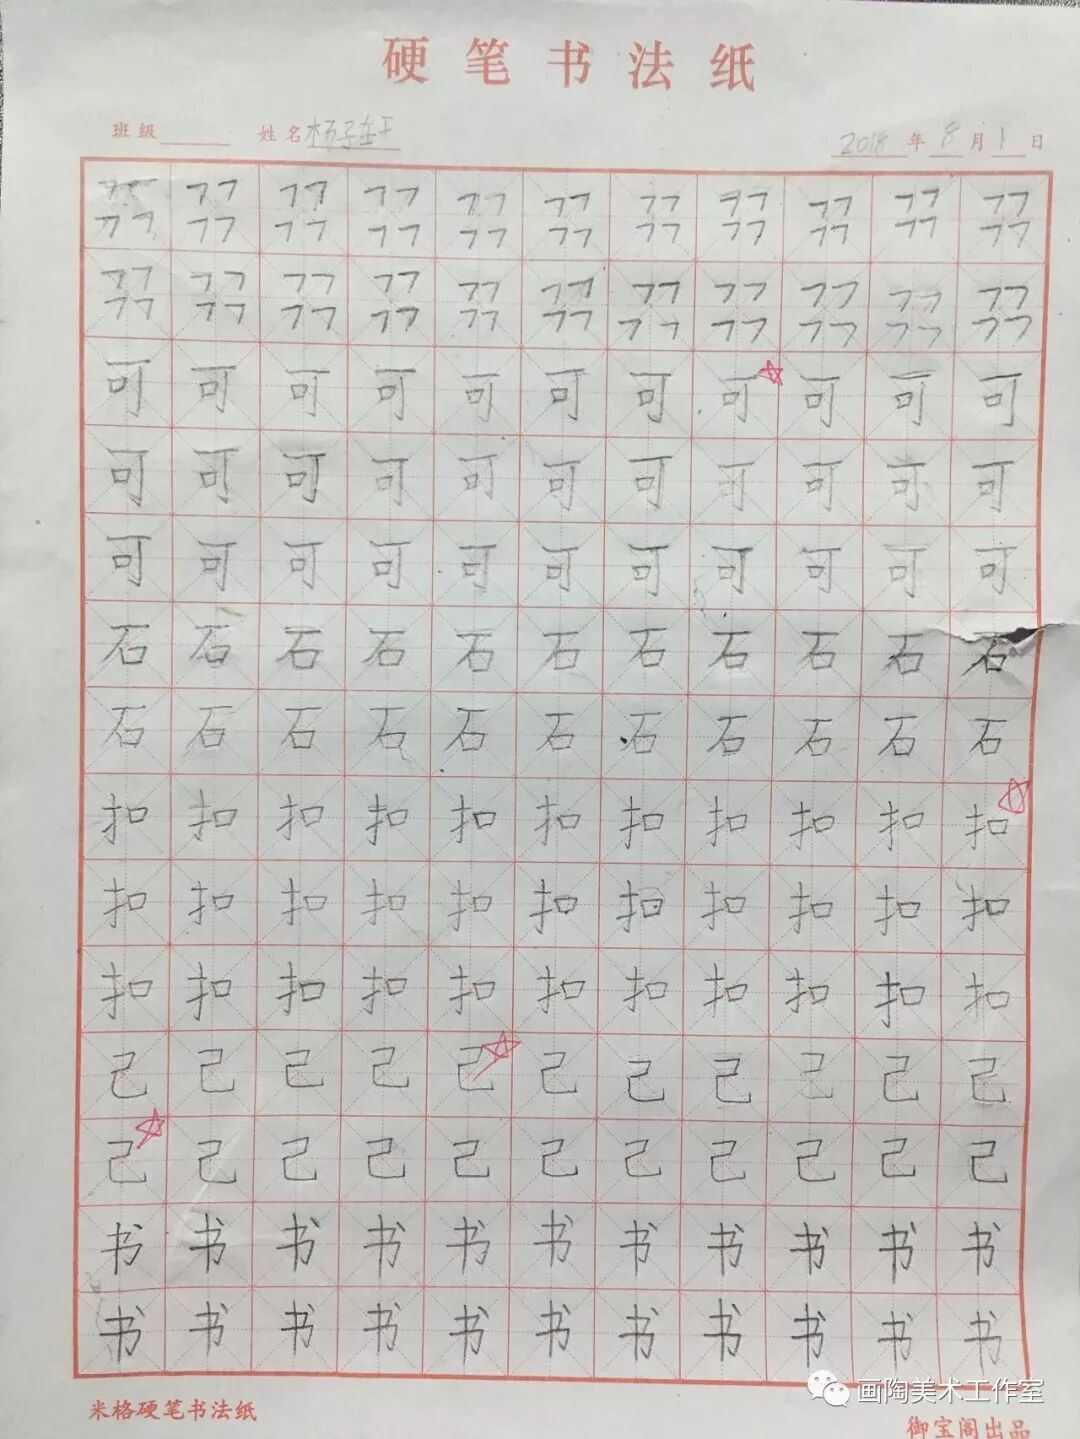 硬笔书法纸
班级 姓名 杨子 2018年8月1日
可 可 可 可 可 可 可 可 可 可 可
可 可 可 可 可 可 可 可 可 可 可
可 可 可 可 可 可 可 可 可 可 可
石 石 石 石 石 石 石 石 石 石 石
石 石 石 石 石 石 石 石 石 石 石
扣 扣 扣 扣 扣 扣 扣 扣 扣 扣 扣
扣 扣 扣 扣 扣 扣 扣 扣 扣 扣 扣
扣 扣 扣 扣 扣 扣 扣 扣 扣 扣 扣
己 己 己 己 己 己 己 己 己 己 己
己 己 己 己 己 己 己 己 己 己 己
书 书 书 书 书 书 书 书 书 书 书
书 书 书 书 书 书 书 书 书 书 书
画陶美术工作室
米格硬笔书法纸 御宝阁出品